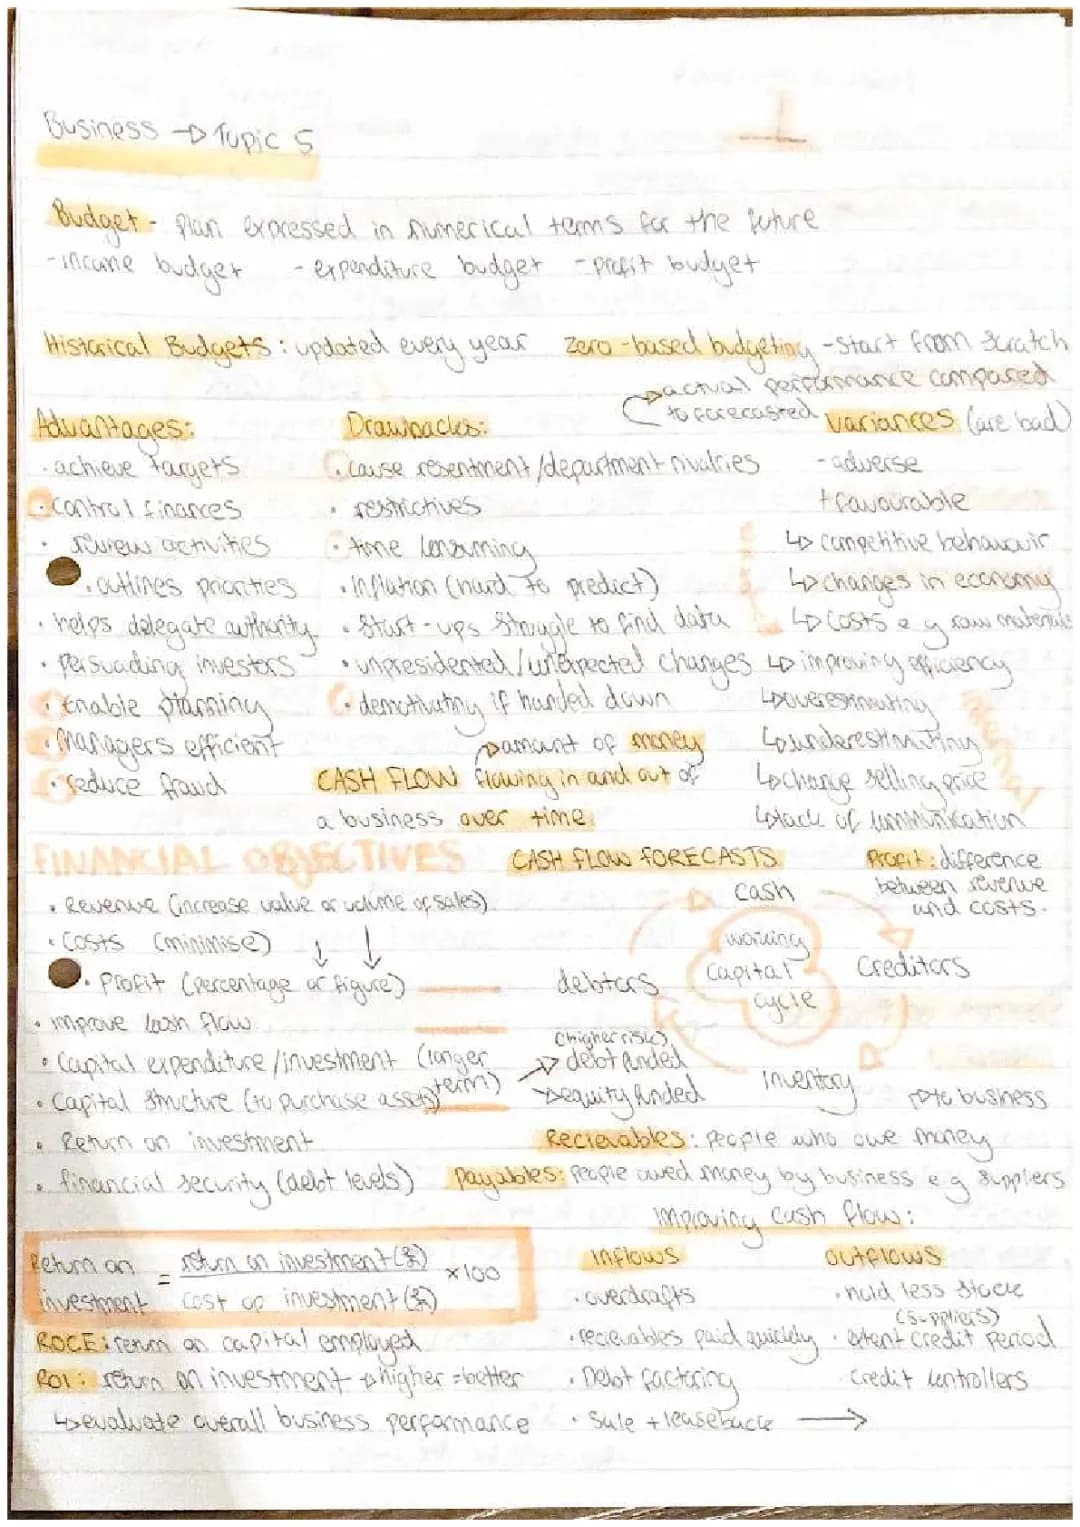 1
Business → Topic 5
Budget - plan expressed in numerical terms for the future
- income budget - expenditure budget - profit budget
Historical Budgets: updated every year
zero-based budgeting - start from scratch
variances (are bad)
→ actual performance compared
to forecasted
- adverse
+ favourable
↳ competitive behaviour
↳ changes in economy
↳ costs e g raw materials
↳ improving efficiency
↳ overestimating
↳ underestimating
↳ change selling price
↳ lack of communication
internal
Advantages:
· achieve targets
· control finances
· review activities
· outlines priorities
· helps delegate authority
· persuading investors
· Enable planning
· Managers efficient
· reduce fraud
Drawbacks:
· cause resentment/department rivalries
· restrictives
· time consuming
· Inflation (hard to predict)
· Start-ups struggle to find data
· unpresidented/unexpected changes
· demotivating if handed down
CASH FLOW → amount of money
flowing in and out of
a business over time.
FINANCIAL OBJECTIVES
· Revenue (increase value or volume of sales)
· Costs (minimise) ↓ ↓
· Profit (percentage or figure)
· improve cash flow
· Capital expenditure/investment (longer
term)
· Capital structure (to purchase assets)
→ debt funded
(higher risk)
→ equity funded
· Return on investment
· financial security (debt levels)
CASH FLOW FORECASTS
Profit: difference
between revenue
and costs.
cash
creditors
inventory
debtors
working
capital
cycle
→ to business
Recievables: people who owe money
Payables: People owed money by business e g suppliers
Return on investment = return on investment (£) / cost of investment (£) x100
ROCE: return on capital employed
ROI: return on investment → higher = better
↳ evaluate overall business performance
Improving cash flow:
Inflows
· overdrafts
· recievables paid quickly
· Debt factoring
· Sale + leaseback →
outflows
· hold less stock
(suppliers)
· extent credit period
· Credit controllers